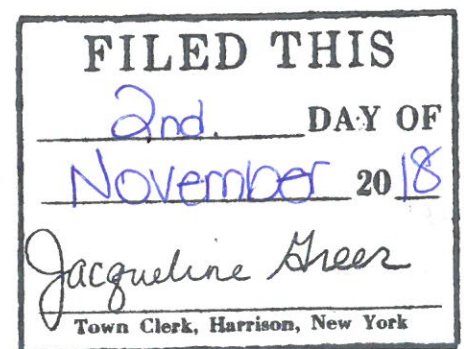 FILED THIS
2nd. DAY OF
November 2018
Jacqueline Greer
Town Clerk, Harrison, New York